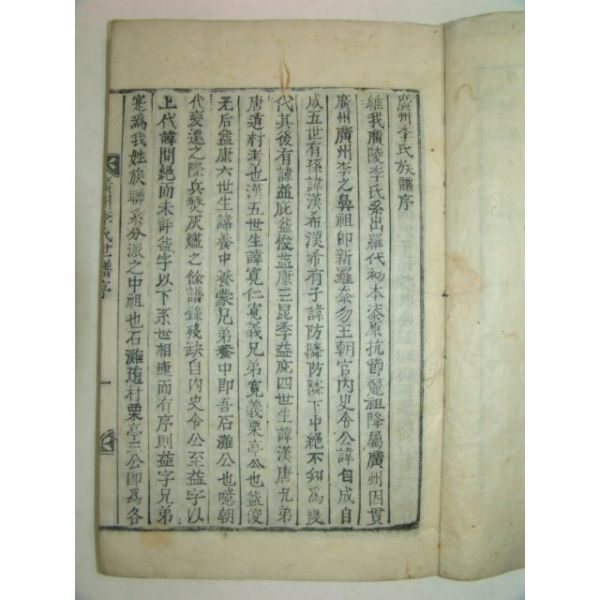 廣州李氏族譜序
維我廣陵李氏系出羅代初本漆原抗節麗祖降屬廣州因貫
廣州廣州李之鼻祖卽新羅奈勿王朝官內史令公諱自成自
成五世有孫諱漢希漢希有子諱防隣防隣下中絶不知爲幾
代其後有諱益庇益俊益康三昆季益庇四世生諱漢唐兄弟
唐遁村考也漢五世生諱寬仁寬義兄弟寬義栗亭公也益俊
无后益康六世生諱養中養蒙兄弟養中卽吾石灘公也噫朝
代變遷之際兵燹灰燼之餘譜錄殘缺自內史令公至益字以
上代諱間絶而未詳益字以下系世相連而有序則益字兄弟
寔爲我姓族聯系分派之中祖也石灘遁村栗亭三公卽爲各
廣州李氏世譜序
一